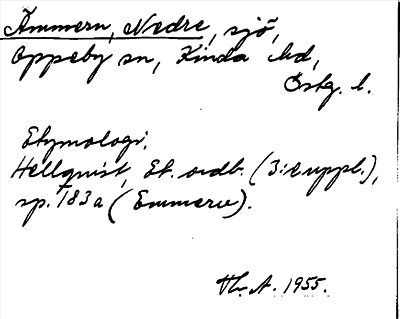 Ämmern, Nedre, sjö,
Oppeby sn, Kinda hd,
Östg. l.
Etymologi.
Hellquist, Et. ordb. (3:e uppl.),
sp. 183 a (Emmern).
Th. A. 1955.